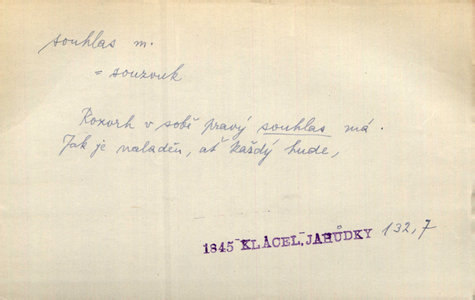 souhlas m.
= souzvuk
Rozvrh v sobě pravý souhlas má.
Jak je naladěn, ať každý hude,
1845 KLÁCEL, JAHŮDKY 132,7